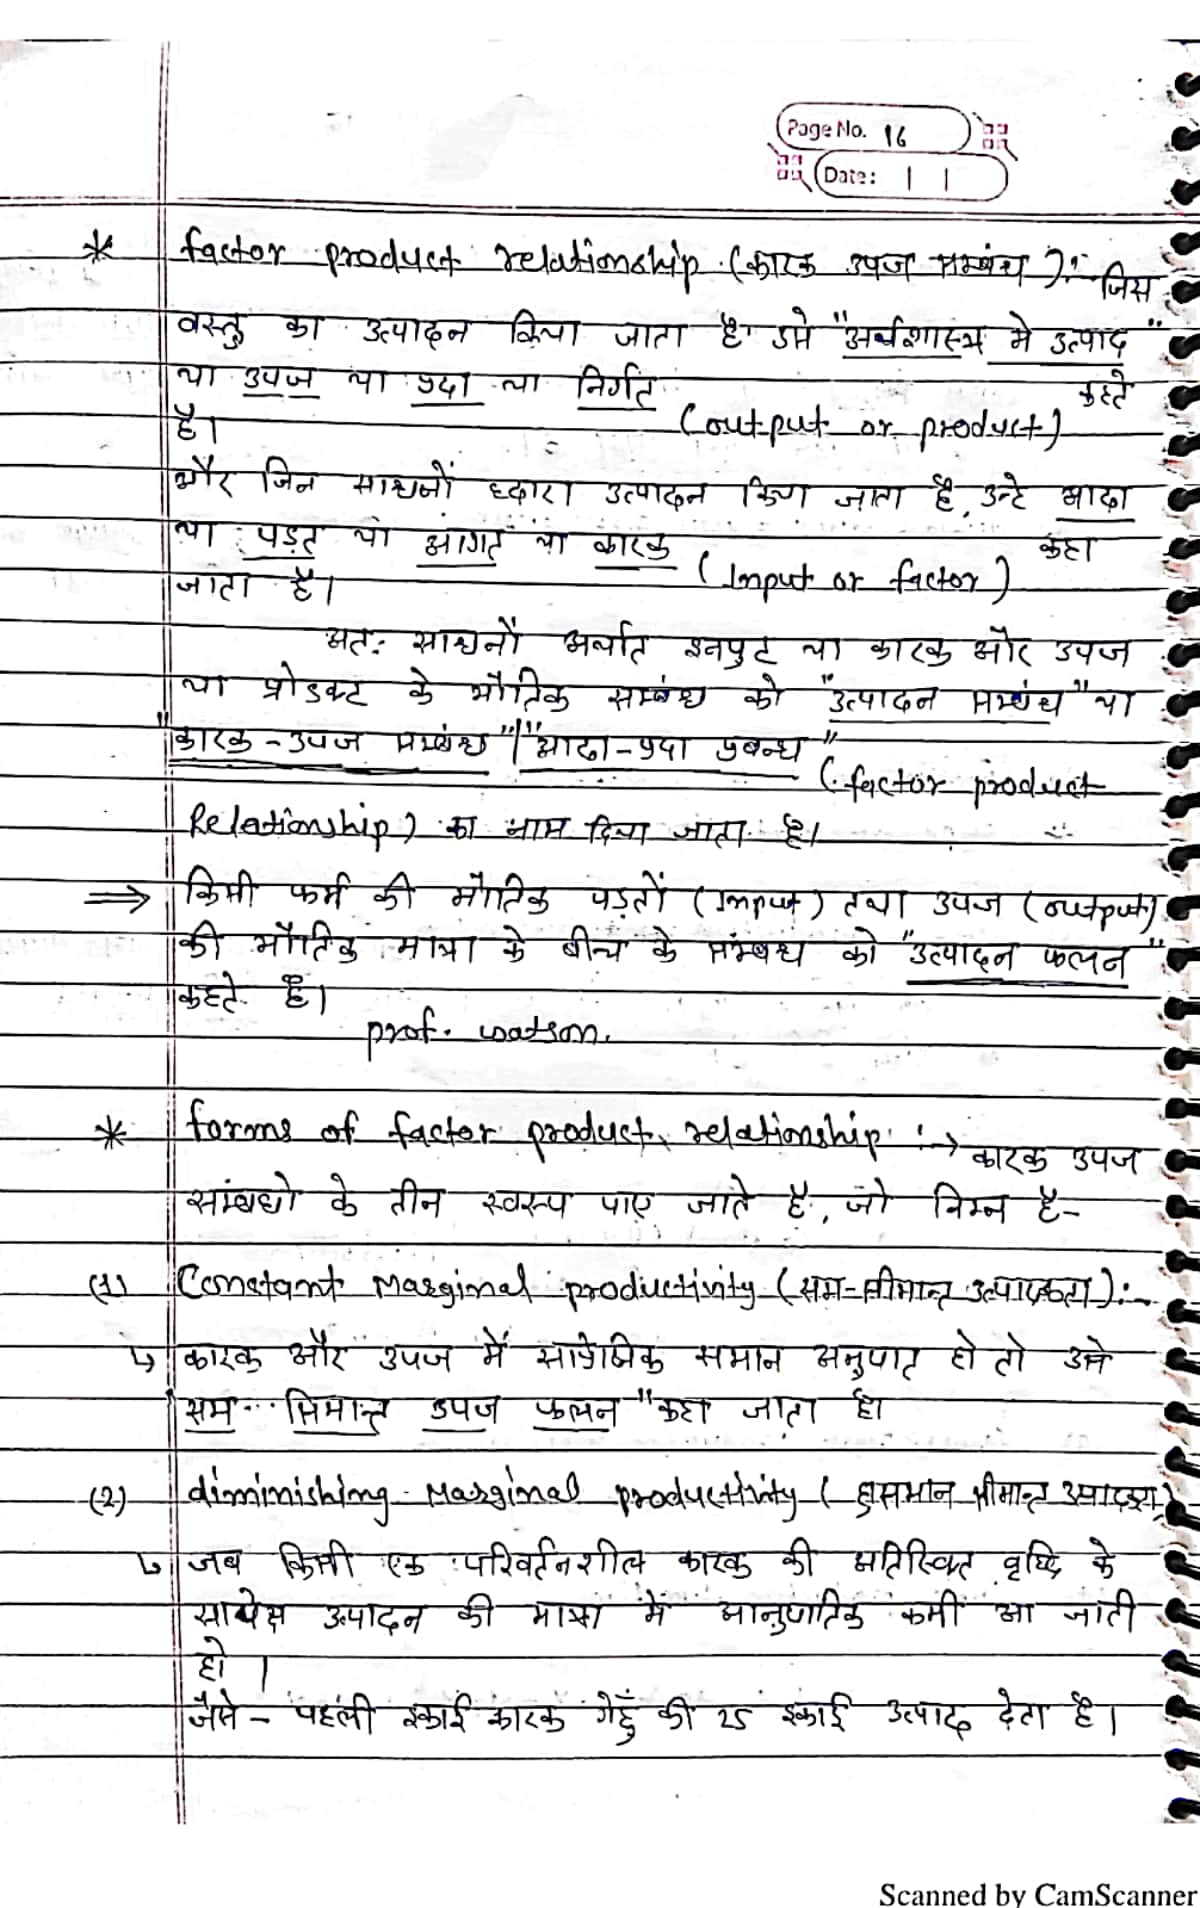 Page No. 16
Date: | |
* factor product relationship (कारक उपज सम्बंध ):- जिस
वस्तु का उत्पादन किया जाता है उसे "अर्थशास्त्र मे उत्पाद"
या उपज या प्रदा या निर्गत (output or product) कहते
है।
और जिन साधनों ध्दारा उत्पादन किया जाता है, उन्हे आदा
या पड़त या आगत या कारक (Input or factor) कहा
जाता है।
अतः साधनों अर्थात इनपुट या कारक और उपज
या प्रोडक्ट के भौतिक सम्बंध को "उत्पादन सम्बंध" या
"कारक - उपज सम्बंध"/"आदा - प्रदा प्रबन्ध" (factor product
Relationship) का नाम दिया जाता है।
⇒ किसी फर्म की भौतिक पड़तों (Input) तथा उपज (output)
की भौतिक मात्रा के बीच के संम्बंध को "उत्पादन फलन"
कहते है।
prof. watson.
* forms of factor product relationship :→ कारक उपज
संम्बधो के तीन स्वरुप पाए जाते है, जो निम्न है-
(1) Constant Marginal productivity (सम-सीमान्त उत्पादकता):-
↳ कारक और उपज में सापेक्षिक समान अनुपात हो तो उसे
"सम सिमान्त उपज फलन" कहा जाता है।
(2) diminishing Marginal productivity ( ह्रासमान सीमान्त उत्पादकता)
↳ जब किसी एक परिवर्तनशील कारक की अतिरिक्त वृध्दि के
सापेक्ष उत्पादन की मात्रा में आनुपातिक कमी आ जाती
हो।
जैसे - पहली इकाई कारक गेहुँ की 25 इकाई उत्पाद देता है।
Scanned by CamScanner